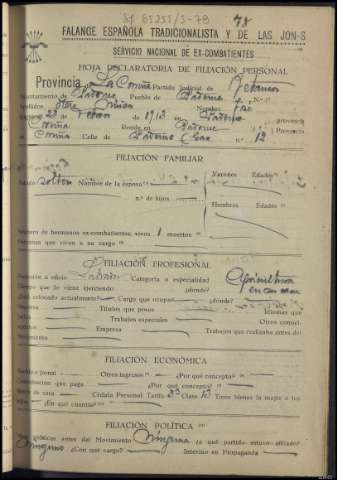 78
FALANGE ESPAÑOLA TRADICIONALISTA Y DE LAS JON-S
SERVICIO NACIONAL DE EX-COMBATIENTES
HOJA DECLARATORIA DE FILIACIÓN PERSONAL
Provincia La Coruña Partido Judicial de Betanzos
Ayuntamiento de Paderne Pueblo de Paderne N.º
Apellidos Nombre José
Nacido 23 de 1913 en Paderne provincia
Coruña Reside en Paderne Provincia
Coruña Calle de Paderne n.º 12
FILIACIÓN FAMILIAR
Estado soltero Nombre de la esposa Varones Edades
n.º de hijos
Hembras Edades
Número de hermanos ex-combatientes, vivos 1 muertos
Personas que viven a su cargo
FILIACIÓN PROFESIONAL
Profesión u oficio Labrador Categoría o especialidad Agricultura
Tiempo que lo viene ejerciendo ¿dónde? en su casa
¿Está colocado actualmente? Cargo que ocupa ¿dónde?
Títulos que posee Idiomas que
Trabajos especiales Otros conoci-
mientos Empresa Trabajos que realizaba antes del
Movimiento
FILIACIÓN ECONÓMICA
Sueldo o jornal Otros ingresos ¿Por qué concepto?
Contribución que paga ¿Por qué concepto?
Cédula Personal Tarifa 3ª Clase Tiene bienes la mujer o los
hijos ¿En qué cuantía?
FILIACIÓN POLÍTICA
antes del Movimiento Ninguna ¿a qué partido estuvo afiliado?
Ninguno ¿Con qué cargo? Intervino en Propaganda